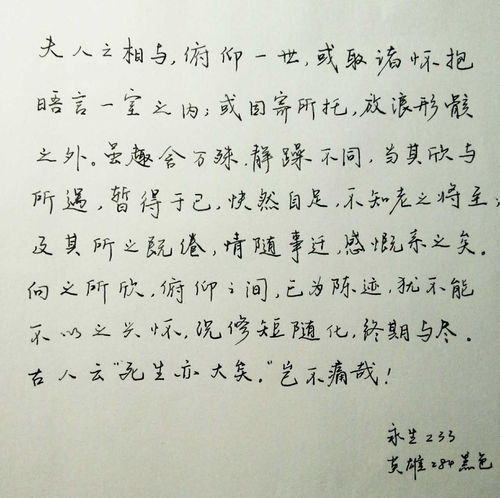 夫人之相与，俯仰一世，或取诸怀抱
晤言一室之内；或因寄所托，放浪形骸
之外。虽趣舍万殊，静躁不同，当其欣与
所遇，暂得于己，快然自足，不知老之将至；
及其所之既倦，情随事迁，感慨系之矣。
向之所欣，俯仰之间，已为陈迹，犹不能
不以之兴怀，况修短随化，终期与尽。
古人云“死生亦大矣。”岂不痛哉！
永生233
英雄284黑色